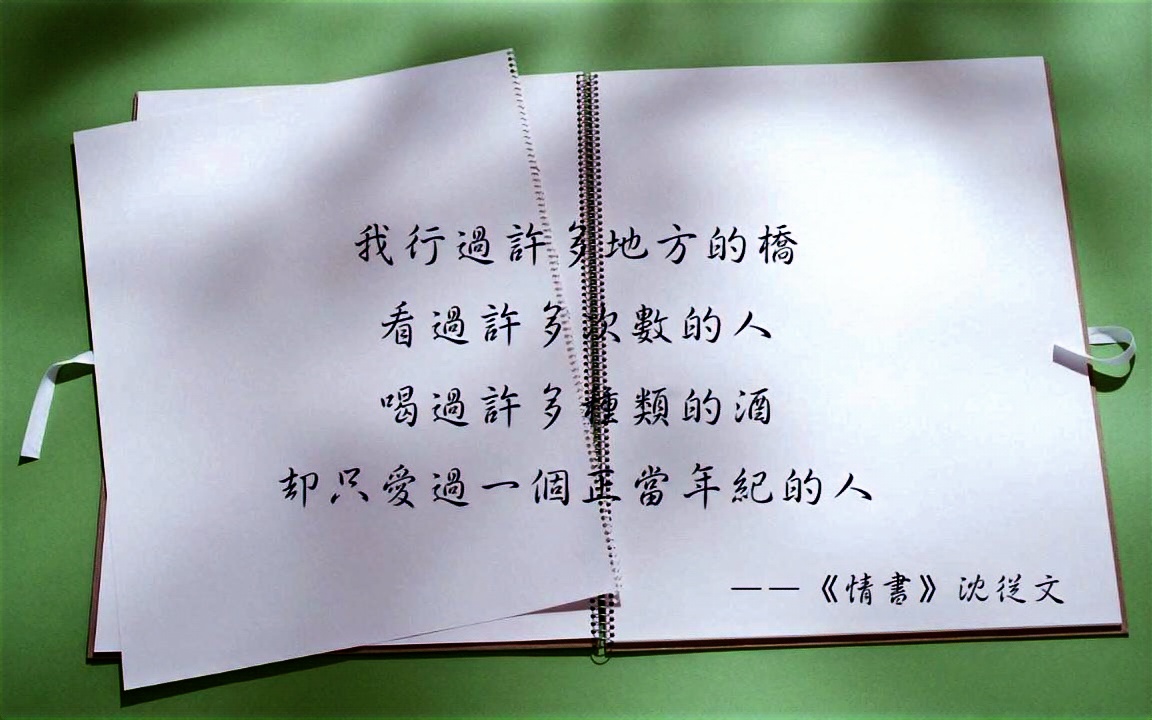 我行過許多地方的橋
看過許多次數的人
喝過許多種類的酒
却只愛過一個正當年紀的人
——《情書》沈從文